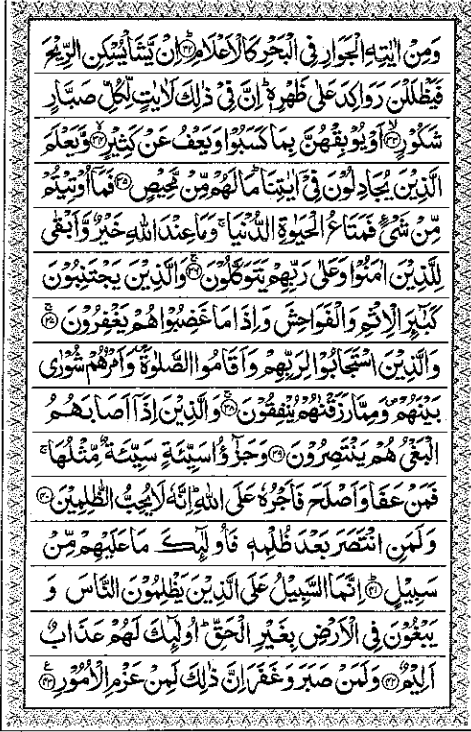 وَمِنْ اٰيٰتِهِ الْجَوَارِ فِى الْبَحْرِ كَالْاَعْلَامِ ﴿٣٢﴾ اِنْ يَّشَاْ يُسْكِنِ الرِّيْحَ
فَيَظْلَلْنَ رَوَاكِدَ عَلٰى ظَهْرِهٖ ؕ اِنَّ فِىْ ذٰلِكَ لَاٰيٰتٍ لِّكُلِّ صَبَّارٍ
شَكُوْرٍ ﴿٣٣﴾ اَوْ يُوْبِقْهُنَّ بِمَا كَسَبُوْا وَيَعْفُ عَنْ كَثِيْرٍ ﴿٣٤﴾ وَّيَعْلَمَ
الَّذِيْنَ يُجَادِلُوْنَ فِىْۤ اٰيٰتِنَا ؕ مَا لَهُمْ مِّنْ مَّحِيْصٍ ﴿٣٥﴾ فَمَاۤ اُوْتِيْتُمْ
مِّنْ شَىْءٍ فَمَتَاعُ الْحَيٰوةِ الدُّنْيَا ۚ وَمَا عِنْدَ اللّٰهِ خَيْرٌ وَّاَبْقٰى
لِلَّذِيْنَ اٰمَنُوْا وَعَلٰى رَبِّهِمْ يَتَوَكَّلُوْنَ ﴿٣٦﴾ وَالَّذِيْنَ يَجْتَنِبُوْنَ
كَبٰٓئِرَ الْاِثْمِ وَالْفَوَاحِشَ وَاِذَا مَا غَضِبُوْا هُمْ يَغْفِرُوْنَ ﴿٣٧﴾
وَالَّذِيْنَ اسْتَجَابُوْا لِرَبِّهِمْ وَاَقَامُوا الصَّلٰوةَ ۪ وَاَمْرُهُمْ شُوْرٰى
بَيْنَهُمْ ۪ وَمِمَّا رَزَقْنٰهُمْ يُنْفِقُوْنَ ﴿٣٨﴾ وَالَّذِيْنَ اِذَاۤ اَصَابَهُمُ
الْبَغْىُ هُمْ يَنْتَصِرُوْنَ ﴿٣٩﴾ وَجَزٰٓؤُا سَيِّئَةٍ سَيِّئَةٌ مِّثْلُهَا ۚ
فَمَنْ عَفَا وَاَصْلَحَ فَاَجْرُهٗ عَلَى اللّٰهِ ؕ اِنَّهٗ لَا يُحِبُّ الظّٰلِمِيْنَ ﴿٤٠﴾
وَلَمَنِ انْتَصَرَ بَعْدَ ظُلْمِهٖ فَاُولٰٓئِكَ مَا عَلَيْهِمْ مِّنْ
سَبِيْلٍ ﴿٤١﴾ اِنَّمَا السَّبِيْلُ عَلَى الَّذِيْنَ يَظْلِمُوْنَ النَّاسَ وَ
يَبْغُوْنَ فِى الْاَرْضِ بِغَيْرِ الْحَقِّ ؕ اُولٰٓئِكَ لَهُمْ عَذَابٌ
اَلِيْمٌ ﴿٤٢﴾ وَلَمَنْ صَبَرَ وَغَفَرَ اِنَّ ذٰلِكَ لَمِنْ عَزْمِ الْاُمُوْرِ ﴿٤٣﴾